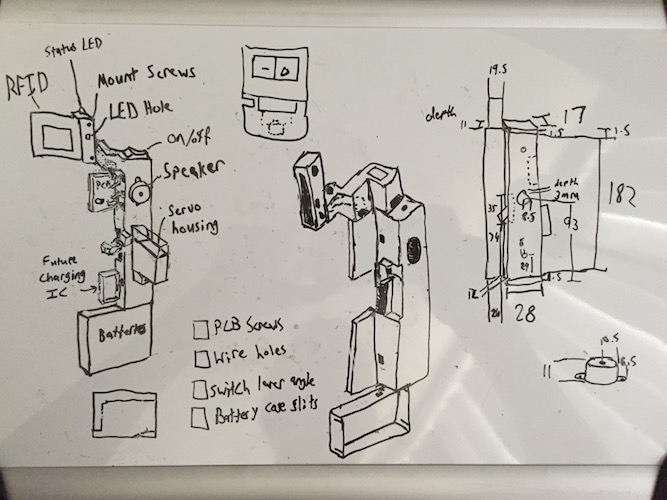 Status LED
RFID
Mount Screws
LED Hole
on/off
PCB
Speaker
Servo
housing
Future
Charging
IC
Batteries
PCB Screws
Wire holes
Switch lower angle
Battery case slits
19.5
depth
11
17
1.5
1.5
182
depth
2mm
35
8.5
93
24
29
1.5
12
28
10.5
11